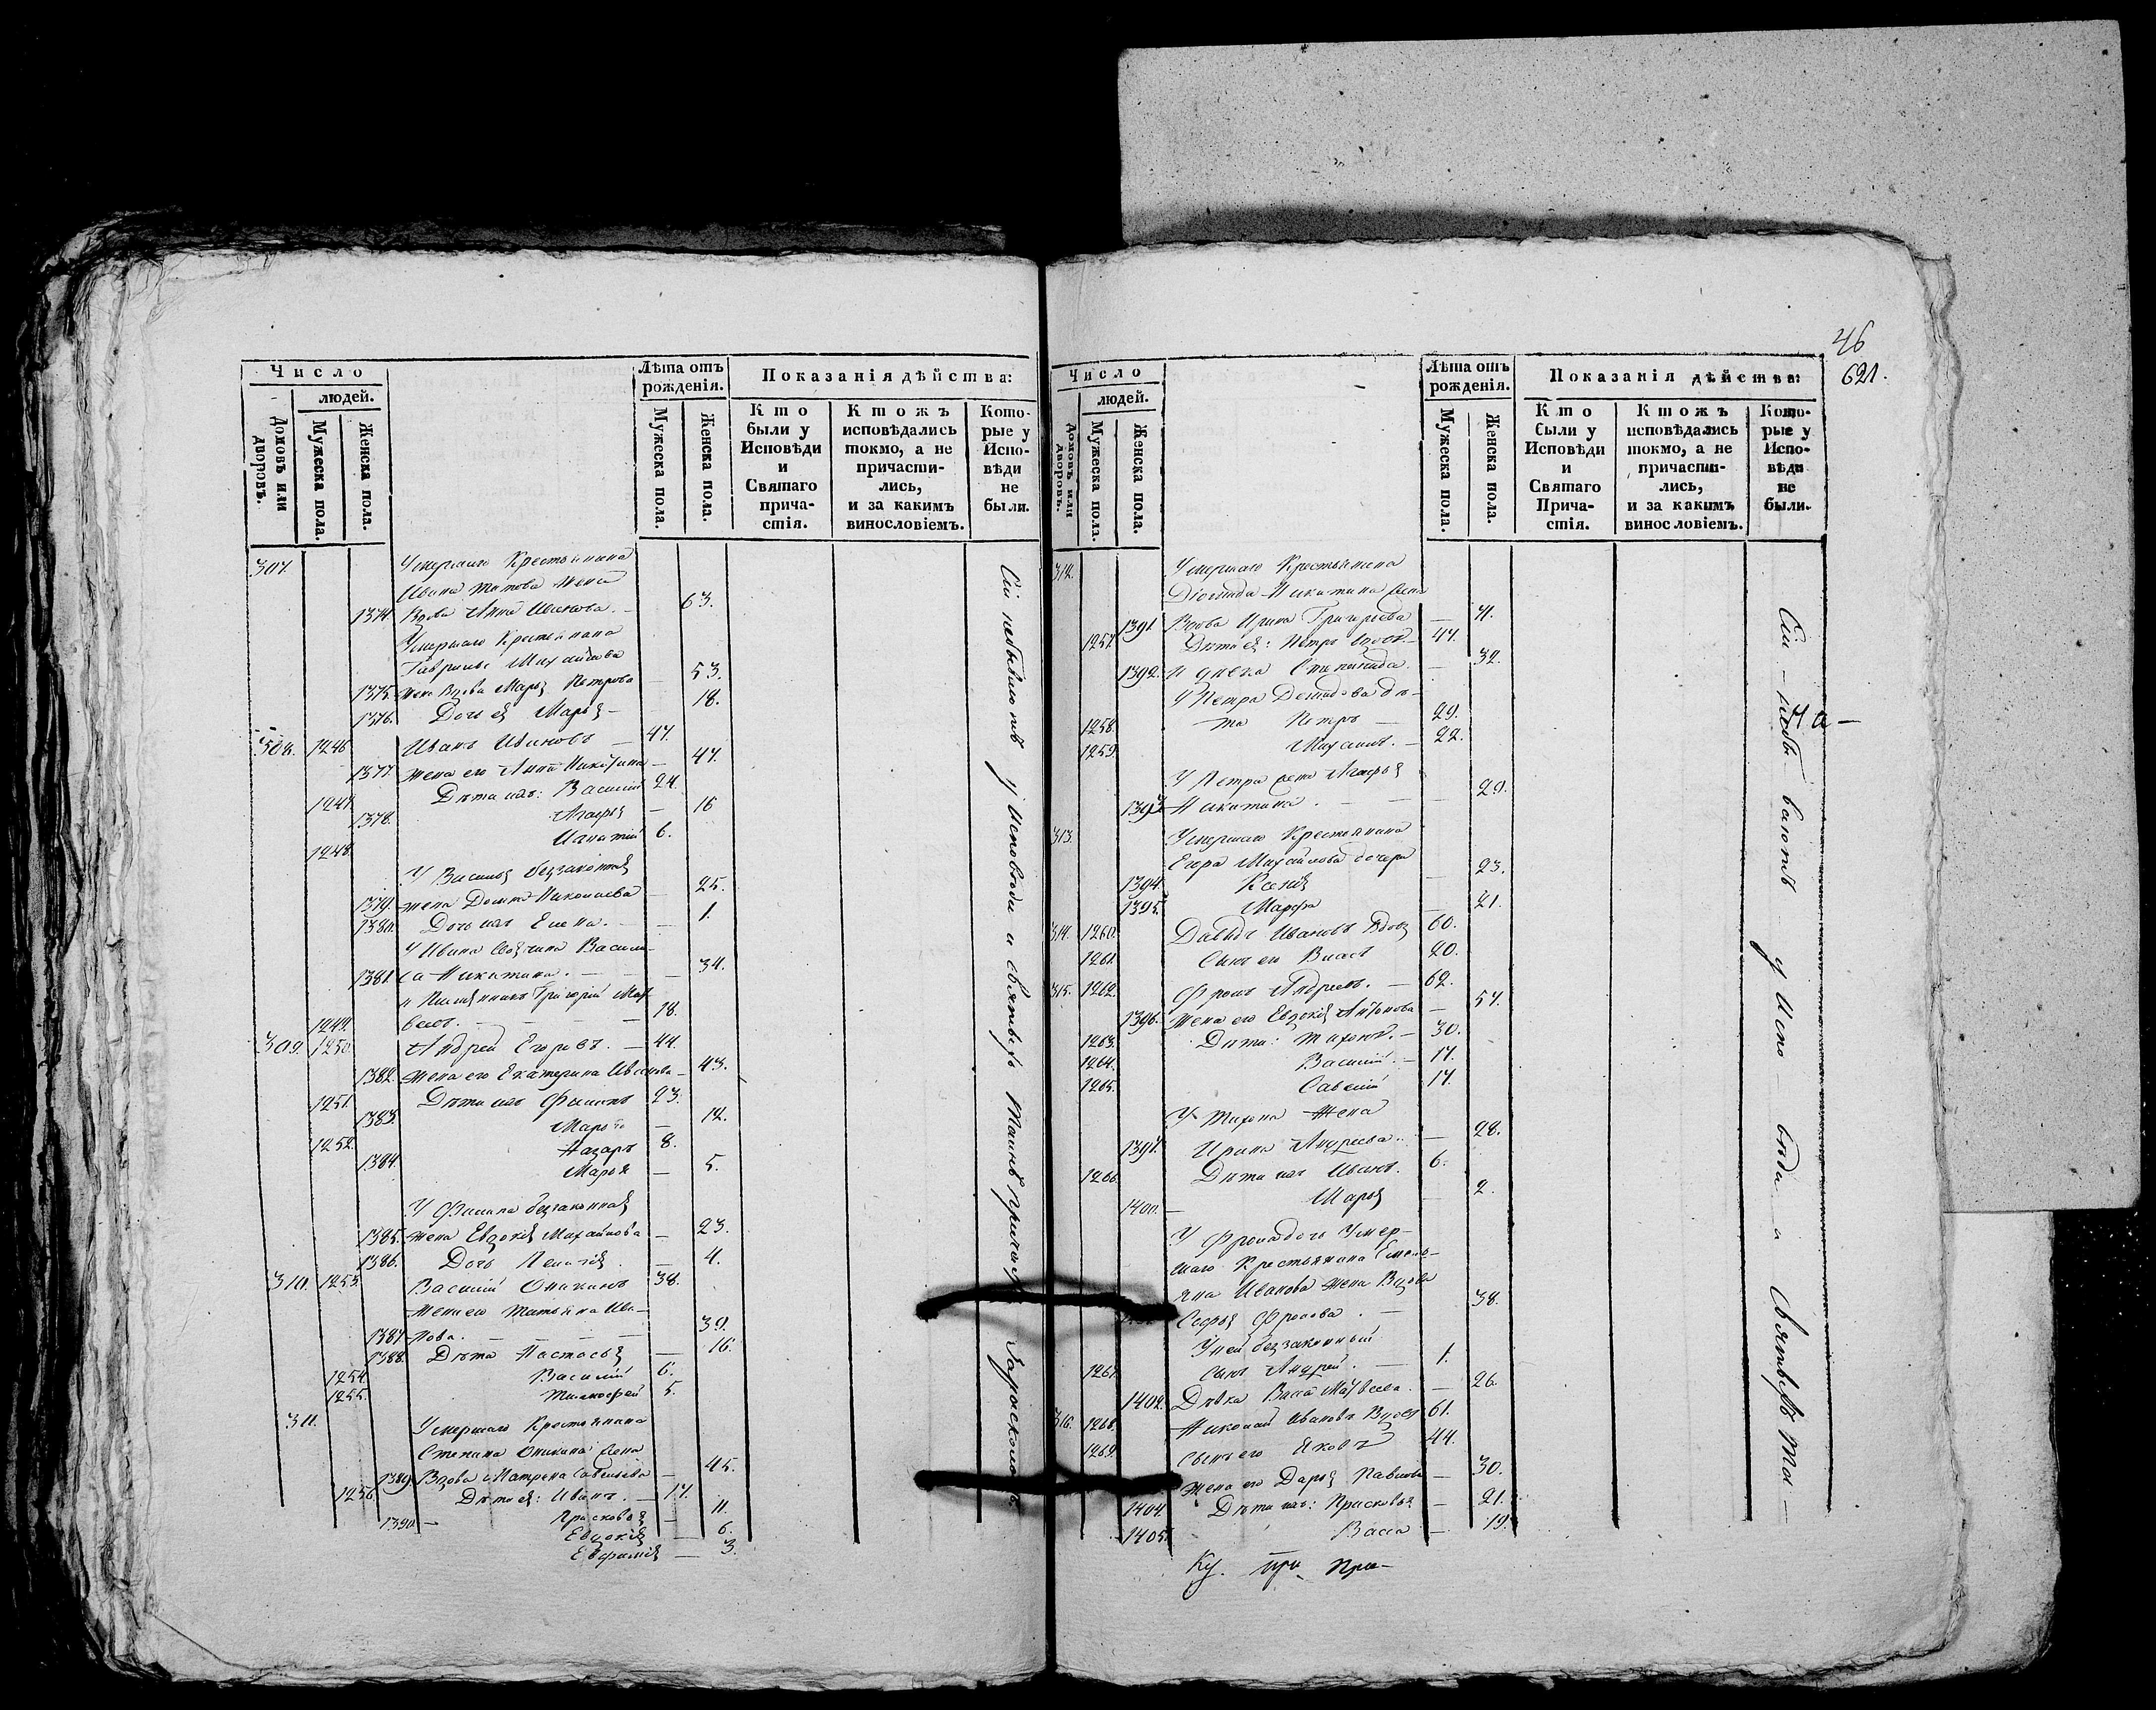 Число
людей.
Домовъ или дворовъ.
Мужеска пола.
Женска пола.
Лѣта отъ рожденія.
Мужеска пола.
Женска пола.
Показанія дѣйства:
Кто были у Исповѣди и Святаго причастія.
Ктожъ исповѣдались токмо, а не причастились, и за какимъ винословіемъ.
Которые у Исповѣди не были.
307. Умершаго Крестьянина
Ивана Титова жена
1374. Вдова Анна Иванова. 63.
Умершаго Крестьянина
Гаврилы Михайлова
1375. жена Вдова Марья Петрова — 53.
1376. Дочь ея Марья — 18.
308. 1246. Иванъ Ивановъ — 47.
1377. жена его Анна Никитина — 47.
1247. Дѣти ихъ: Василий 24.
1378. Агафья — 16
1248. Игнатий 6.
У Василья беззаконная
1379. жена Домна Николаева — 25.
1380. Дочь ихъ Елена. — 1.
У Ивана Васили-
1381. са Никитина. — 34.
и Племянникъ Григорий Мат-
1249. веевъ. — 18.
309. 1250. Андрей Егоровъ. — 44.
1382. жена его Екатерина Иванова — 43.
1251. Дѣти ихъ Филипъ 23.
1383. Марья — 12.
1252. Назаръ 8.
1384. Марья — 5.
У Филипа беззаконная
1385. жена Евдокія Михайлова — 23.
1386. Дочь Пелагія — 4.
310. 1253. Василий Оникинъ 38.
жена его Татьяна Ива-
1387. нова. — 39.
1388. Дѣти Настасья — 16.
1254. Василий 6.
1255. Тимофей 5.
311. Умершаго Крестьянина
Степана Оникина жена
1389. Вдова Матрена Савельева — 45.
1256. Дѣти ея: Иванъ. — 17.
1390. — Прасковья — 11.
Евдокія — 6.
Евфимія — 3.
Сіи небывают у Исповѣди и Святыхъ Таинъ Причастія
46
621.
Число
людей.
Домовъ или дворовъ.
Мужеска пола.
Женска пола.
Лѣта отъ рожденія.
Мужеска пола.
Женска пола.
Показанія дѣйства:
Кто были у Исповѣди и Святаго Причастія.
Ктожъ исповѣдались токмо, а не причастились, и за какимъ винословіемъ.
Которые у Исповѣди не были.
312. Умершаго Крестьянина
Діомида Никитина жена
1391. Вдова Ирина Григорьева — 71.
1257. Дѣти ея: Петръ вдов. — 47.
1392. и дѣвка Степанида. — 32.
У Петра Демидова дѣ-
1258. ти Петръ — 29.
1259. Михаилъ. — 22.
У Петра жена Агафья
1393. Никитина. — 29.
313. Умершаго Крестьянина
Егора Михайлова дочери
1394. Ксенія — 23.
1395. Марфа — 21.
314. 1260. Давидъ Ивановъ вдовъ 60.
1261. Сынъ его Власъ 20.
315. 1262. Фролъ Андреевъ. — 62.
1396. жена его Евдокія Антонова — 57.
1263. Дѣти: Тихонъ. — 30.
1264. Василий. — 17.
1265. Савелий 17.
У Тихона жена
1397. Ирина Андреева. — 28.
1266. Дѣти ихъ Иванъ. 6.
1400. — Марья — 2.
У Фрола дочь Умер-
шаго Крестьянина Емель-
яна Иванова жена Вдова
Софья Фролова. — 38.
У ней беззаконный
1267. сынъ Андрей. — 1.
1402. Дѣвка Васса Матвеева. — 26.
316. 1268. Николай Ивановъ Вдовъ 61.
1269. Сынъ его Яковъ 44.
жена его Дарья Павлова — 30.
1404. Дѣти ихъ: Прасковья — 21.
1405. Васса — 19.
Сіи - небы- вают у Испо- вѣди и Святыхъ Та-